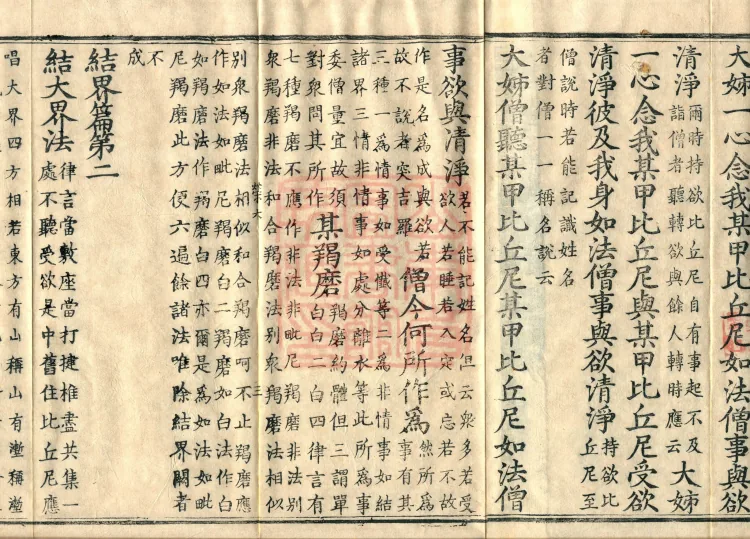 大姊一心念我某甲比丘尼如法僧事與欲
清淨爾時持欲比丘尼自有事起不及詣僧者聽轉欲與餘人轉時應云大姊
一心念我某甲比丘尼與某甲比丘尼受欲
清淨彼及我身如法僧事與欲清淨持欲比丘尼至
僧說時若能記識姓名
者對僧一一稱名說云
大姊僧聽某甲比丘尼某甲比丘尼如法僧
事欲與清淨若不能記姓名但云眾多若受欲人若睡若入定或忘若不故
作是名為成與欲若故不說者突吉羅僧今何所作為然所為事有其
三種一為情事如受懺等二為非情事如結
諸界三情非情事如處分離水等此所為事
委僧量宜故須對眾問其所作其羯磨羯磨約體但三謂單白白二白四律言有
七種羯磨不應作非法非毗尼羯磨非法別
眾羯磨非法和合羯磨法別眾羯磨法相似
三
別眾羯磨法相似和合羯磨呵不止羯磨應
作如法如毗尼羯磨白二羯磨如白法作白
如羯磨法作羯磨白四亦爾是為如法如毗
尼羯磨此方便六遍餘諸法唯除結界闕者
不
成
結界篇第二
結大界法律言當敷座當打揵椎盡共集一處不聽受欲是中舊住比丘尼應
唱大界四方相若東方有山稱山有塹稱塹